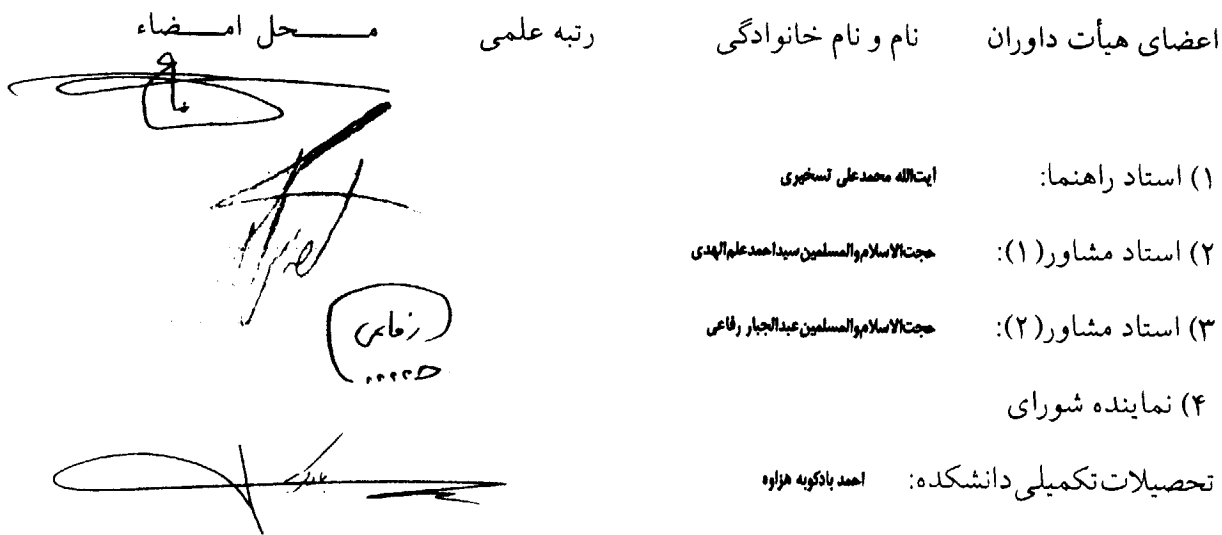 اعضای هیأت داوران نام و نام خانوادگی رتبه علمی مـــحل امــضاء
۱) استاد راهنما: ایت‌الله محمدعلی تسخیری
۲) استاد مشاور(۱): حجت‌الاسلام‌والمسلمین سیداحمدعلم‌الهدی
۳) استاد مشاور(۲): حجت‌الاسلام‌والمسلمین عبدالجبار رفاعی
۴) نماینده شورای
تحصیلات تکمیلی دانشکده: احمد بادکوبه هزاوه